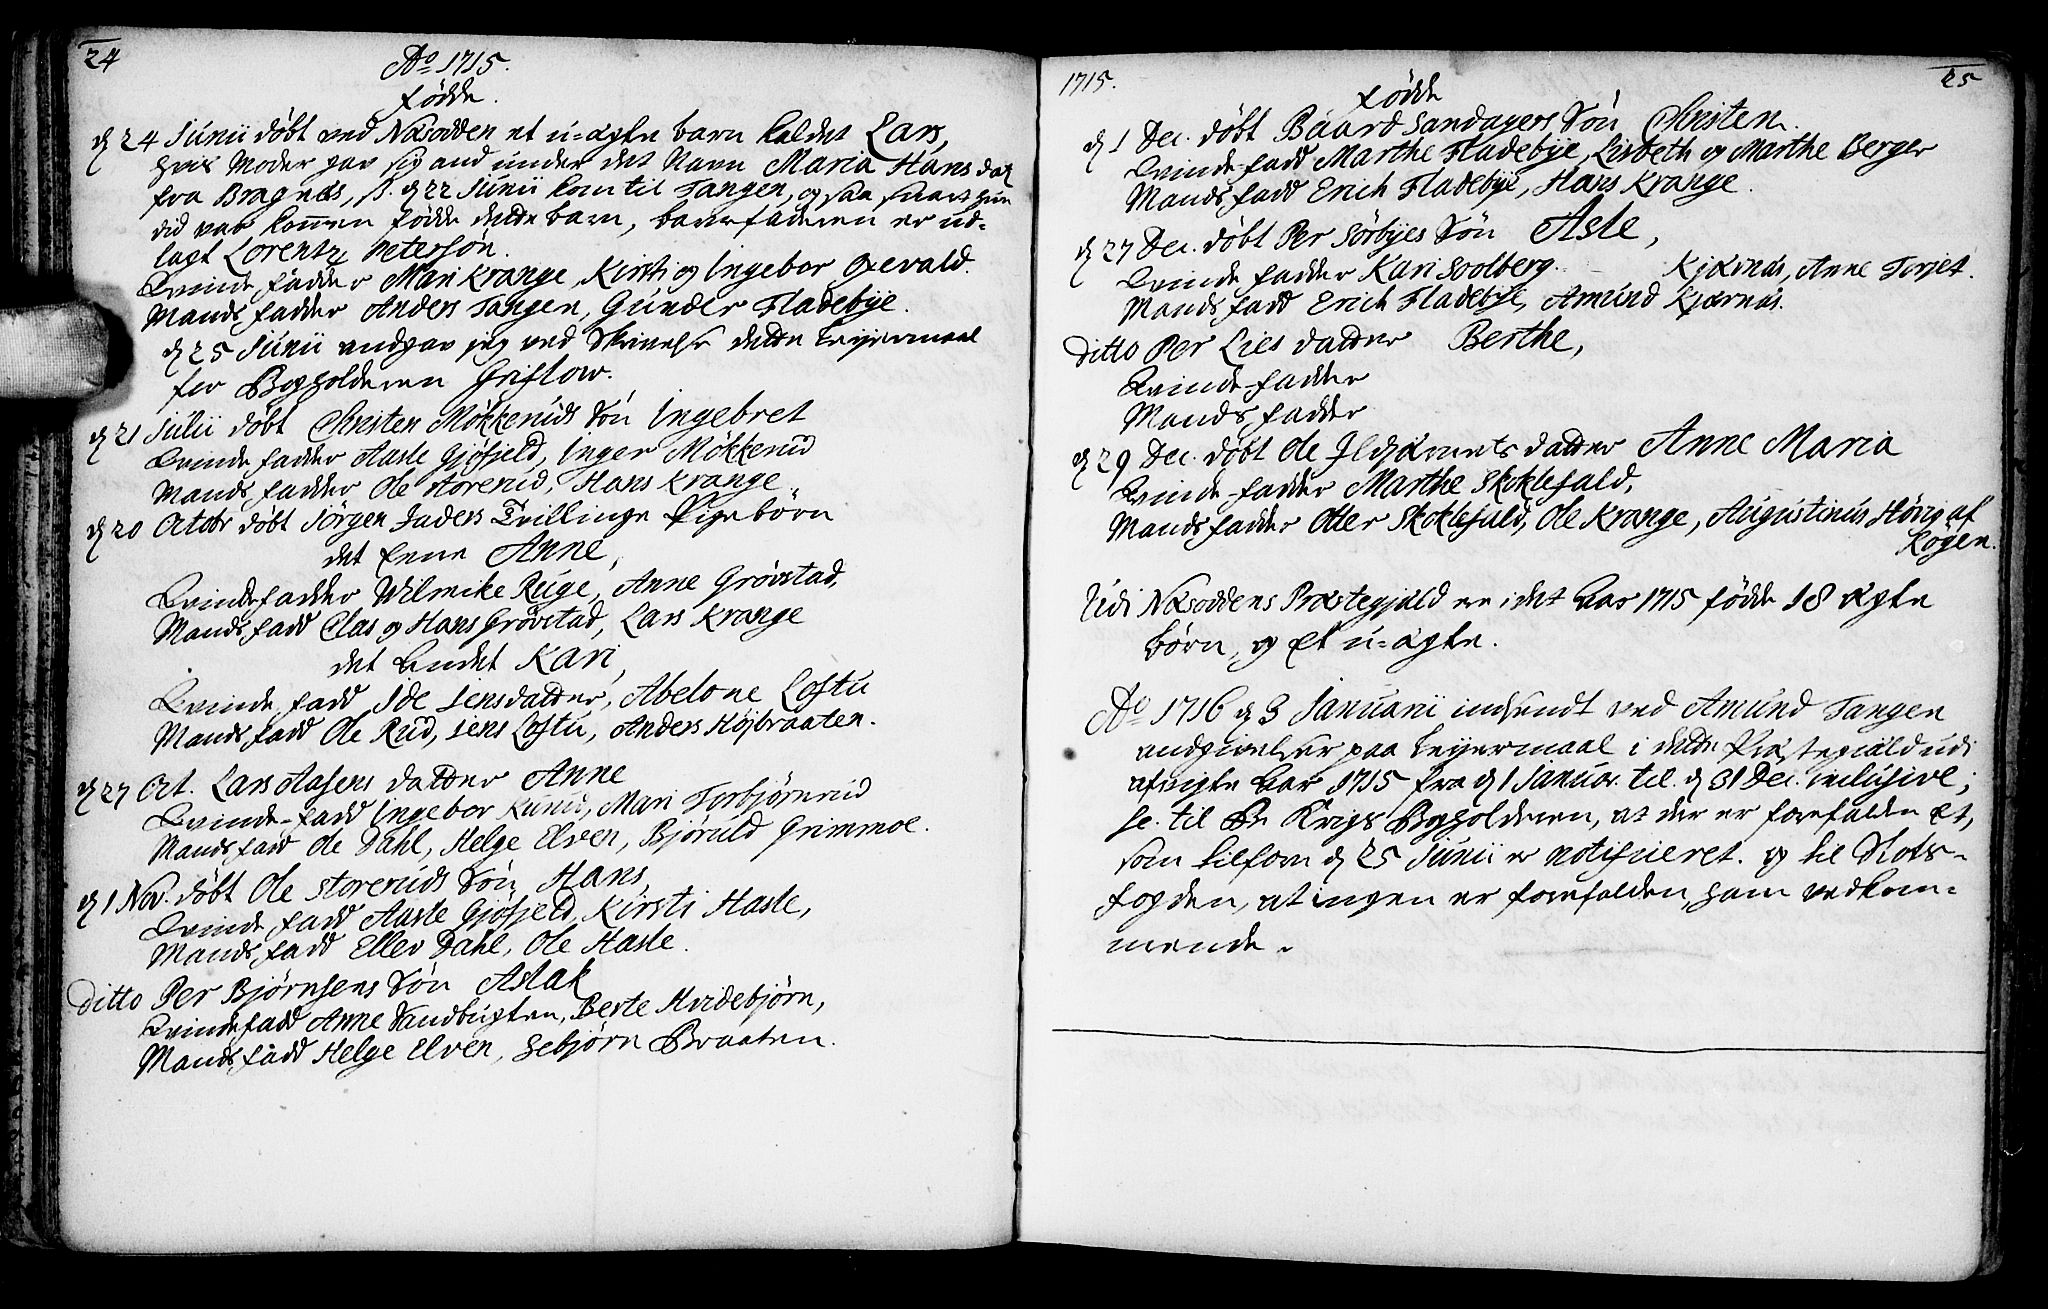 24
Ao 1715.
Fødde.
d 24 Junii døbt ved Næsodden et u-ægte barn kaldet Lars,
hvis Moder gav sig and under det Navn Maria Hans dat
fra Bragnæs, s. d 22 Junii kom til Tangen, og saa snart hun
did var kommen fødde dette barn, barnefaderen er ud-
lagt Lorentz Petersøn.
Qvinde fadder Mari Krange, Kirsti og Ingebor Oxevald.
Mands fadder Anders Tangen, Gunder Fladebÿe.
d 25 Junii andgav jeg ved Skrivelse dette Leyermaal
for Bogholderen Grislow.
d 21 Julii døbt Christen Mökkeruds Søn Ingebret
Qvinde fadder Aaste Gjöfjeld, Inger Mökkerud
Mands fadder Ole Storerud, Hans Krange.
d 20 Octobr døbt Jörgen Jaders Tvillinge Pigebörn
det Eene Anne,
Qvinde fadder Wilmike Ruge, Anne Gröstad,
Mands fadd Clas og Hans Gröstad, Lars Krange
det Andet Kari,
Qvinde fadd Ide Jensdatter, Abelone Loftu
Mands fadd Ole Rud, Jens Loftu, Anders Höjbraaten.
d 27 Oct. Lars Aasens datter Anne
Qvinde-fadd Ingebor Rund, Mari Torbjörnrud
Mands fadd Ole Dahl, Helge Elven, Björuld Grimmoe.
d 1 Nov. døbt Ole Storeruds Søn Hans,
Qvinde fadd Aaste Gjöfjeld, Kirsti Hasle,
Mands fadd Ellev Dahl, Ole Hasle.
Ditto Per Björnsens Søn Aslak
Qvinde fadd Anne Sandbugten, Berte Hvidebjörn,
Mands fadd Helge Elven, Gebjörn Braaten.
1715.
25
Fødde
d 1 Dec. døbt Baard Sandagers Søn Christen.
Qvinde-fadd Marthe Fladebÿe, Lisbeth og Marthe Berger
Mands fadd Erich Fladebÿe, Hans Krange.
d 27 Dec. døbt Per Sörbyes Søn Asle,
Qvinde fadder Kari Soolberg. Kjærnæs, Anne Torjet.
Mands fadd Erich Fladebÿe, Amund Kjærnæs.
Ditto Per Lies datter Berthe,
Qvinde-fadder
Mands fadder
d 29 Dec. døbt Ole Ildjernets datter Anne Maria
Qvinde-fadder Marthe Skoklefald,
Mands fadder Otter Skoklefald, Ole Krange, Augustinus Hövig af
Röÿen.
Udi Næsoddens Præstegjæld er i det Aar 1715 fødde 18 ægte
börn, og Et u-ægte.
Ao 1716 d 3 Januarii indsendt ved Amund Tangen
andgivelser paa Leyermaal i dette Præstegiæld udi
afvigte Aar 1715 fra d 1 Januar. til d 31 Dec. inclusive;
sc. til Hr Krigs Bogholderen, at der er forefalden Et,
som tilforn d 25 Junii er notificeret. og til Slots-
fogden, at ingen er forefalden, ham vedkom-
mende.